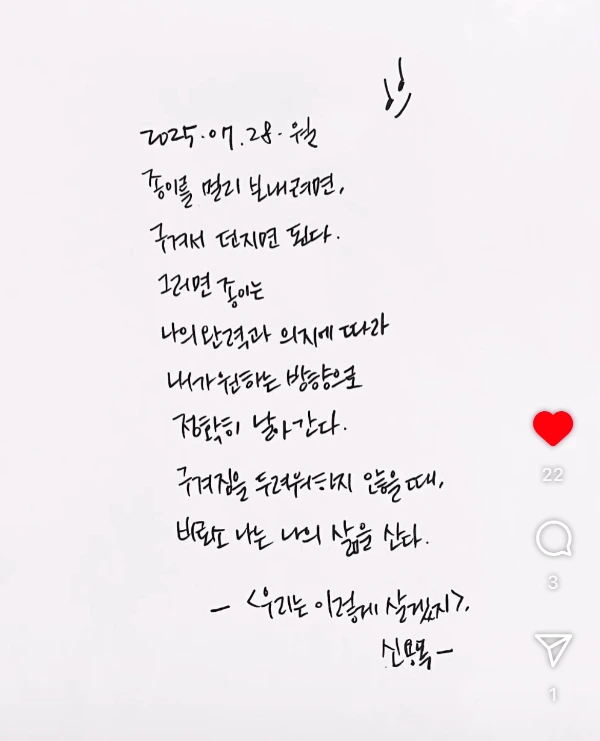 2025.07.28.월
종이를 멀리 보내려면,
구겨서 던지면 된다.
그러면 종이는
나의 완력과 의지에 따라
내가 원하는 방향으로
정확히 날아간다.
구겨짐을 두려워하지 않을 때,
비로소 나는 나의 삶을 산다.
- <우리는 이렇게 살겠지>,
신용목 -
22
3
1